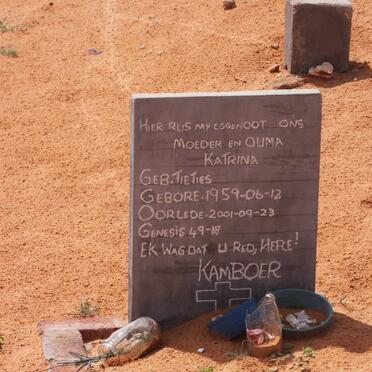 HIER RUS MY EGGENOOT ONS
MOEDER EN OUMA
KATRINA
GEB. TIETIES
GEBORE 1959-06-12
OORLEDE 2001-09-23
GENESIS 49-18
EK WAG DAT U RED, HERE!
KAMBOER